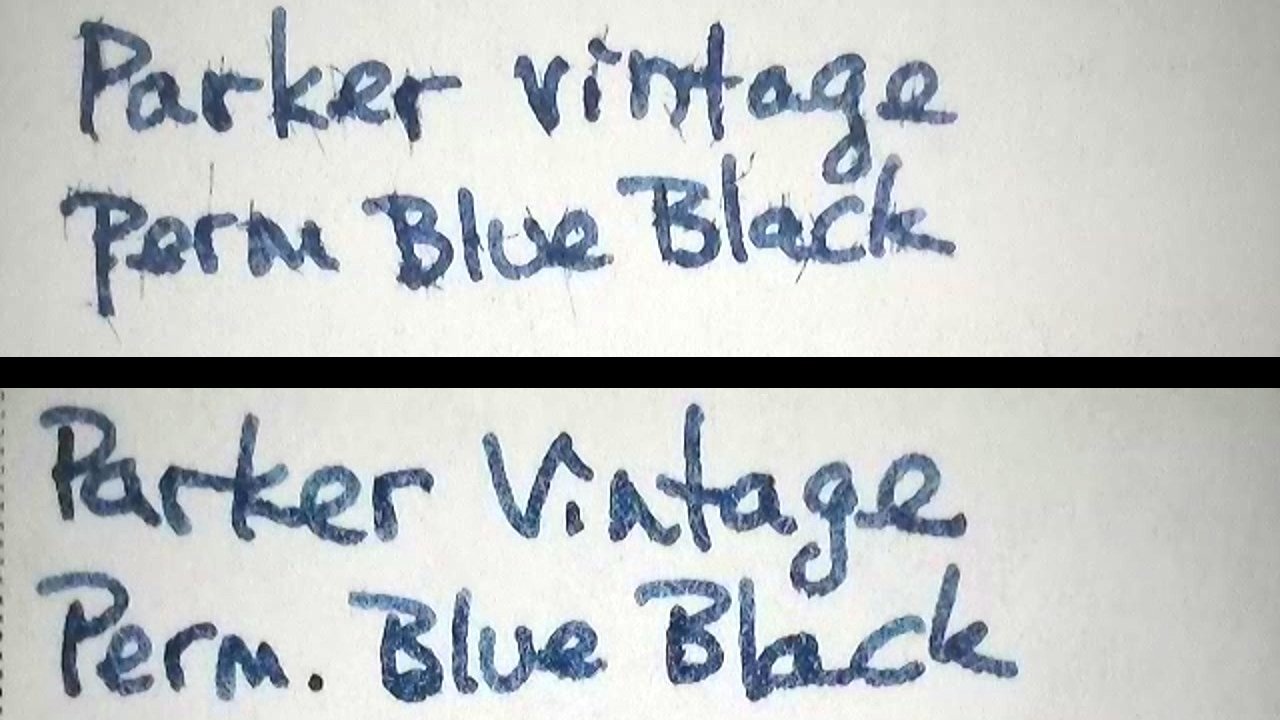 Parker vintage
Perm Blue Black
Parker Vintage
Perm. Blue Black